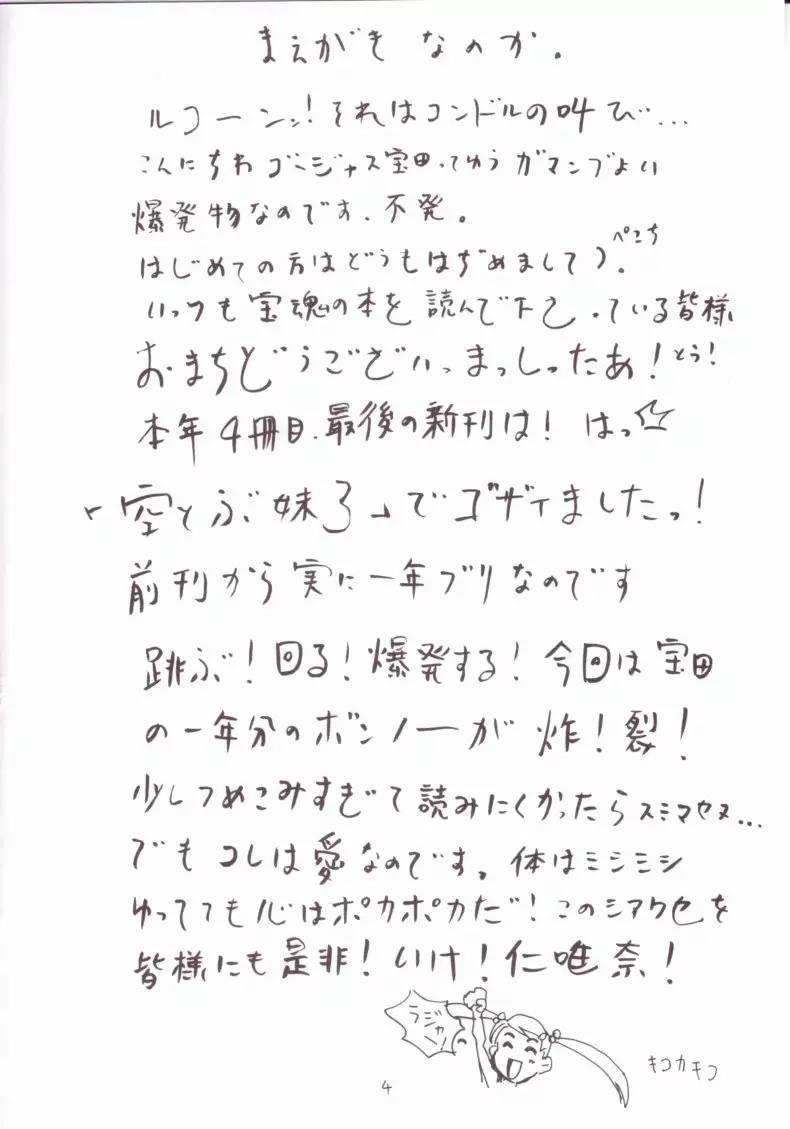 まえがきなのか.
ルコーンッ!それはコンドルの叫び…
こんにちわゴージャス宝田.てゆうガマンブよい
爆発物なのです.不発。
はじめての方はどうもはぢめまして).ぺこち
いっつも宝魂の本を読んで下さっている皆様
おまちどうござぃっまっしったあ!とう!
本年4冊目.最後の新刊は!はっ☆
「空とぶ妹3」でゴザイましたっ!
前刊から実に一年ブリなのです
跳ぶ!回る!爆発する!今回は宝田
の一年分のボンノーが炸!裂!
少しつめこみすぎて読みにくかったらスミマセヌ…
でもコレは愛なのです。体はミシミシ
ゆってても心はポカポカだ!このシアワセを
皆様にも是非!いけ!仁唯奈!
ラジャー!
キコカキコ
4